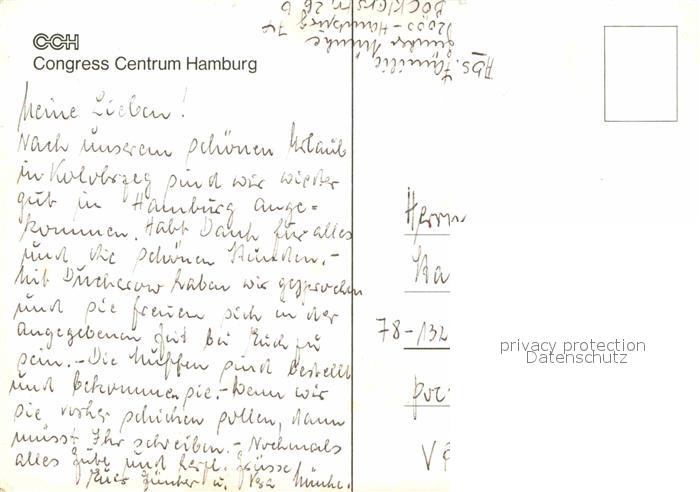 CCH
Congress Centrum Hamburg
Meine Lieben!
Nach unserem schönen Urlaub
in Kolobrzeg sind wir wieder
gut in Hamburg ange=
kommen. Habt Dank für alles
und die schönen Stunden.-
Mit Ducherow haben wir gesprochen
und sie freuen sich in der
angegebenen Zeit bei Euch zu
sein.- Die Muffen sind bestellt
und bekommen sie.- Wenn wir
sie vorher schicken sollen, dann
müsst Ihr schreiben.- Nochmals
alles Gute und herzl. Grüsse
Eure Günter u.
Abs. Familie
Günter
D2000-Hamburg 74
26 b
Herrn
78-132
privacy protection
Datenschutz